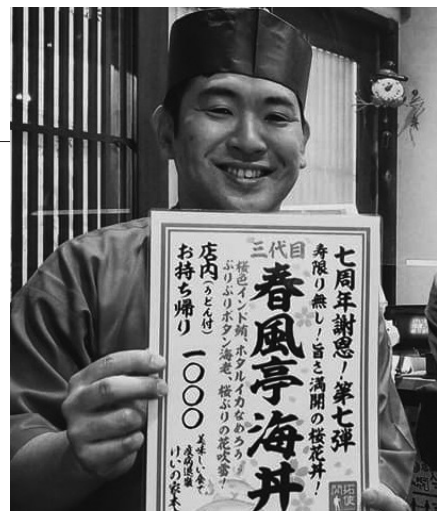 七周年謝恩！第七弾
寿限り無し！旨さ満開の桜花丼！
三代目
春風亭海丼
桜色インド鮪、ホタルイカなめろう
ぷりぷりボタン海老、桜ぶりの花吹雪！
店内（うどん付）
お持ち帰り 一〇〇〇
美味しい食て
疫病退散
けいの家本